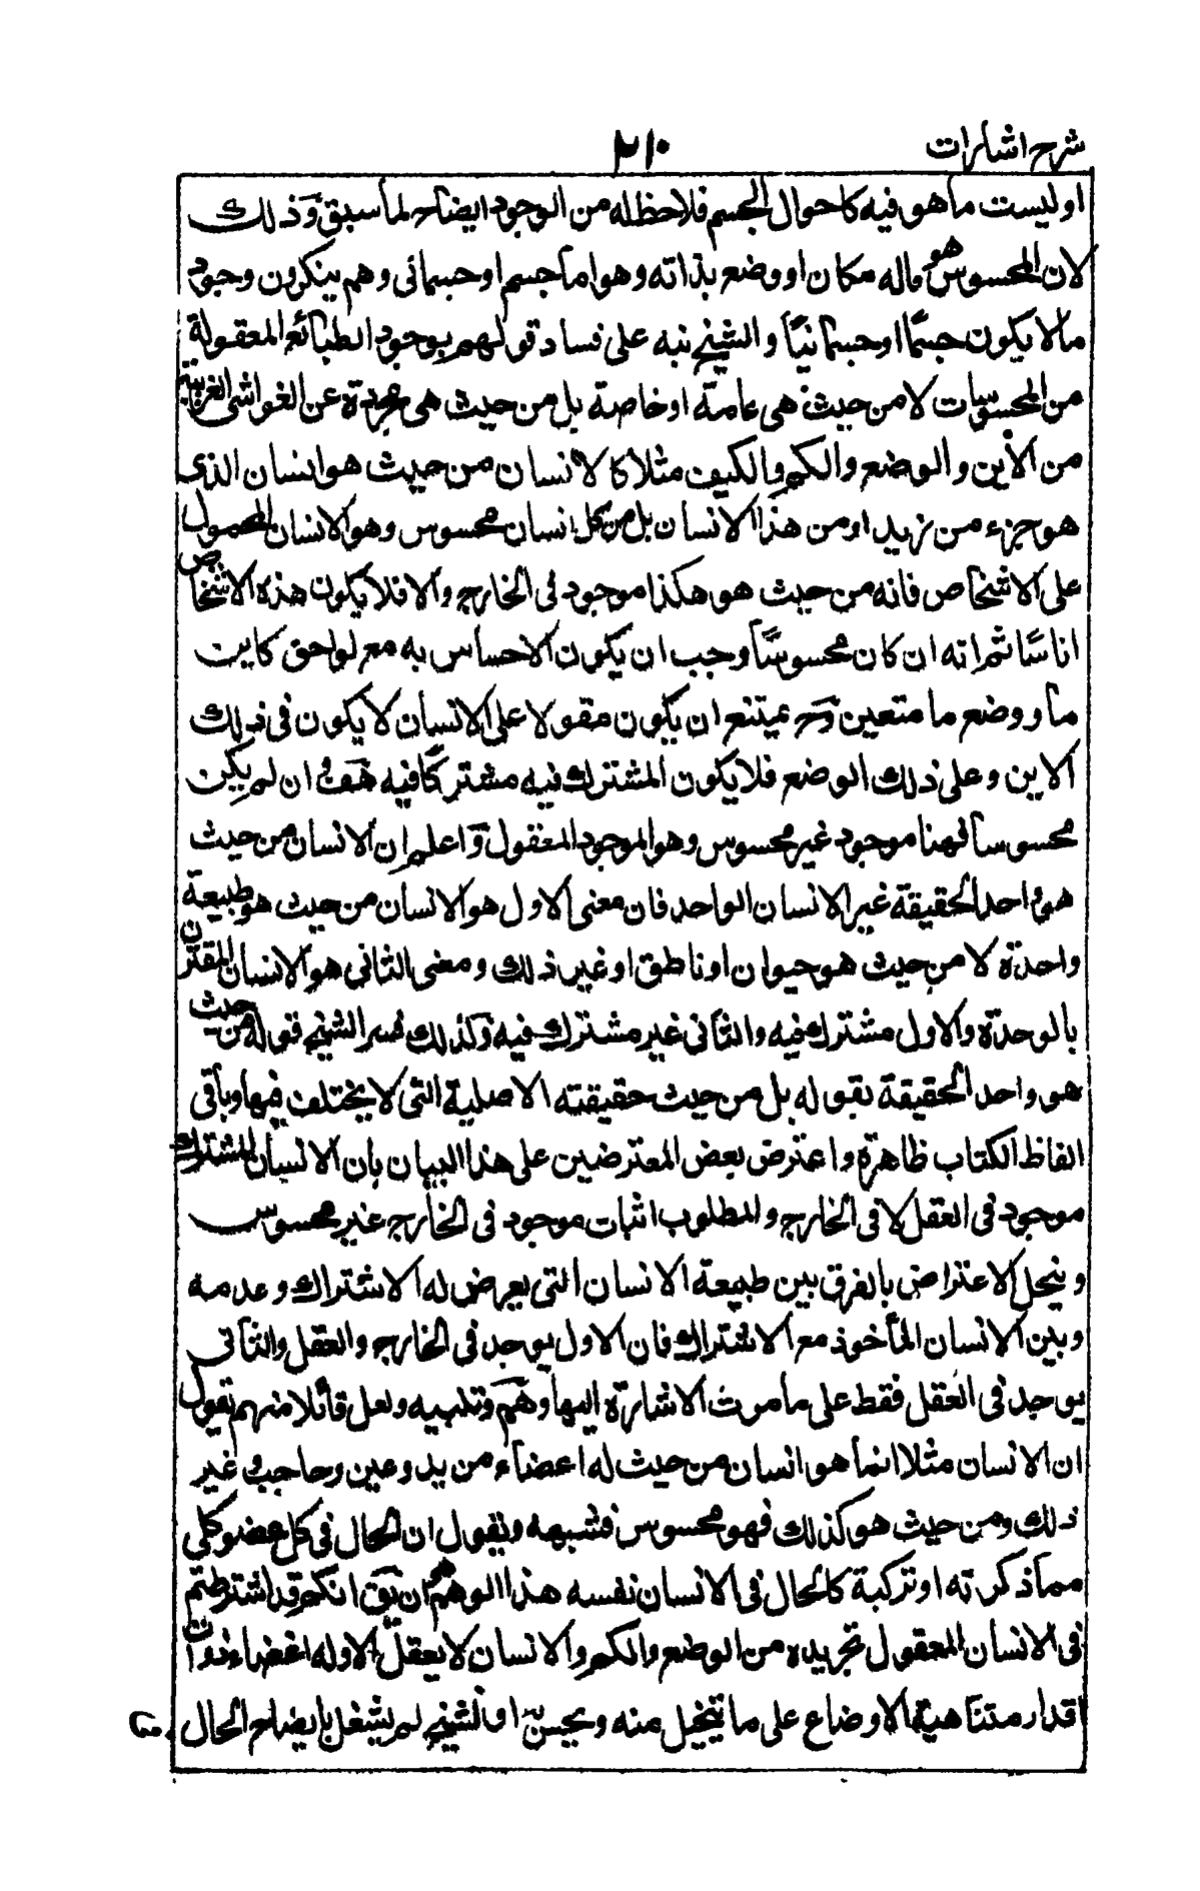 شرح اشارات ٢١٠
او ليست ما هو فيه كاحوال الجسم فلا حظ له من الوجود ايضاح لما سبق وذلك
لان المحسوس هو ماله مكان او وضع بذاته وهو اما جسم او جسمانى وهم ينكرون وجود
مالا يكون جسمًا او جسمانيًا والشيخ نبه على فساد قولهم بوجود الطبائع المعقولة
من المحسوسات لا من حيث هى عامة او خاصة بل من حيث هى مجردة عن الغواشى الغريبة
من الأين والوضع والكم والكيف مثلا كالانسان من حيث هو انسان الذى
هو جزء من زيد او من هذا الانسان بل من كل انسان محسوس وهو الانسان المحمول
على الاشخاص فانه من حيث هو هكذا موجود فى الخارج والا فلا يكون هذه الاشخاص
اناسًا ثم انه ان كان محسوسًا وجب ان يكون الاحساس به مع لواحق كاين
ما ووضع ما متعين وح يمتنع ان يكون مقولا على الانسان لا يكون فى ذلك
الاين وعلى ذلك الوضع فلا يكون المشترك فيه مشتركًا فيه هف و ان لم يكن
محسوسا فههنا موجود غير محسوس وهو الموجود المعقول واعلم ان الانسان من حيث
هو واحد الحقيقة غير الانسان الواحد فان معنى الاول هو الانسان من حيث هو طبيعة
واحدة لا من حيث هو حيوان او ناطق او غير ذلك ومعنى الثانى هو الانسان المقترن
بالوحدة والاول مشترك فيه والثانى غير مشترك فيه وكذلك فسر الشيخ قوله من حيث
هو واحد الحقيقة بقوله بل من حيث حقيقته الاصلية التى لا يختلف فيها وباقى
الفاظ الكتاب ظاهرة واعترض بعض المعترضين على هذا البيان بان الانسان المشترك
موجود فى العقل لا فى الخارج والمطلوب اثبات موجود فى الخارج غير محسوس
وينحل الاعتراض بالفرق بين طبيعة الانسان التى يعرض له الاشتراك وعدمه
وبين الانسان المأخوذ مع الاشتراك فان الاول يوجد فى الخارج والعقل والثانى
يوجد فى العقل فقط على ما مرت الاشارة اليها وهم وتنبيه ولعل قائلا منهم يقول
ان الانسان مثلا انما هو انسان من حيث له اعضاء من يد وعين وحاجب و غير
ذلك ومن حيث هو كذلك فهو محسوس فنتنبهه ونقول ان الحال فى كل عضو كلى
مما ذكرته او تركبة كالحال فى الانسان نفسه هذا الوهم هو ان يق انكم قد اشترطتم
فى الانسان المعقول تجريده من الوضع والكم والانسان لا يعقل الا وله اعضاء ذوات
اقدار متناهية الاوضاع على ما يتخيل منه ويحس به او الشيخ لم يشغل بايضاح الحال